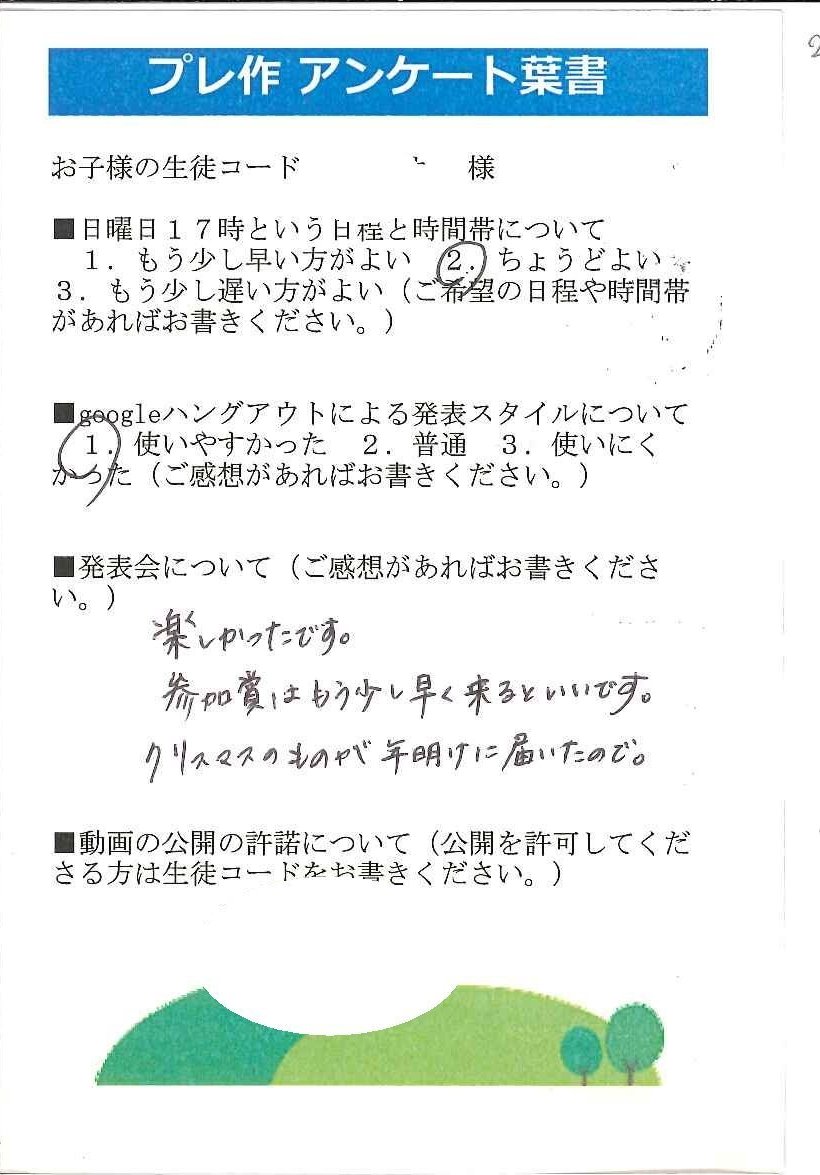 プレ作 アンケート葉書
お子様の生徒コード 様
■日曜日１７時という日程と時間帯について
１．もう少し早い方がよい ２．ちょうどよい
３．もう少し遅い方がよい（ご希望の日程や時間帯
があればお書きください。）
■googleハングアウトによる発表スタイルについて
１．使いやすかった ２．普通 ３．使いにく
かった（ご感想があればお書きください。）
■発表会について（ご感想があればお書きくださ
い。）
楽しかったです。
参加賞はもう少し早く来るといいです。
クリスマスのものが年明けに届いたので。
■動画の公開の許諾について（公開を許可してくだ
さる方は生徒コードをお書きください。）